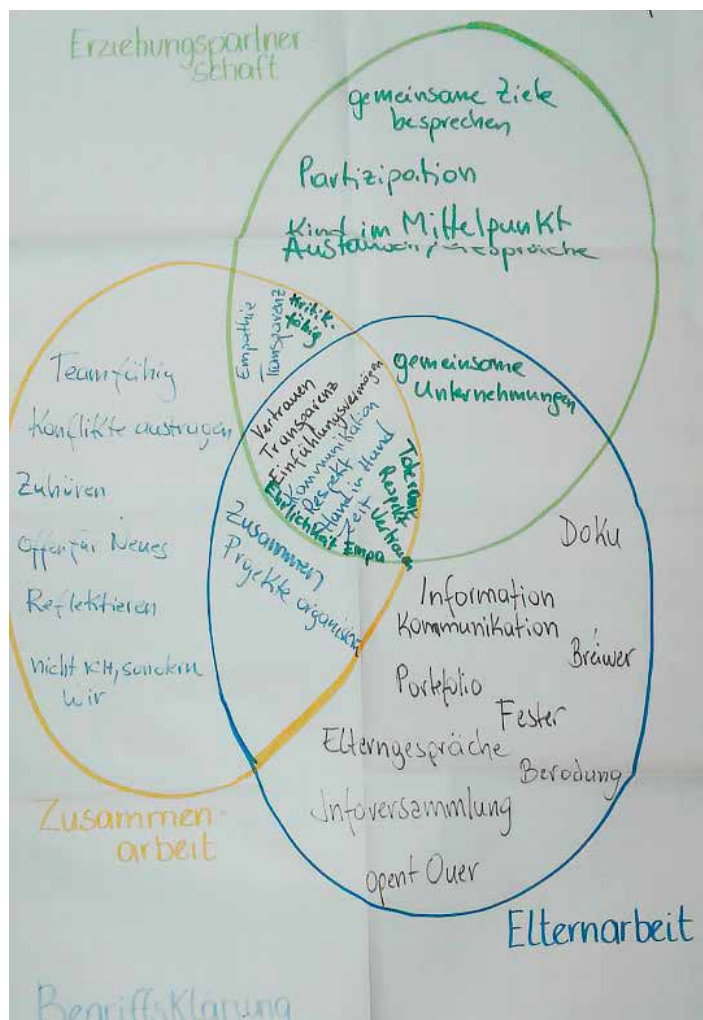 Erziehungspartner
schaft
gemeinsame Ziele
besprechen
Partizipation
Kind im Mittelpunkt
Empathie
Transparenz
Kritik-
fähig
gemeinsame
Unternehmungen
Teamfähig
Konflikte austragen
Zuhören
Offen für Neues
Reflektieren
nicht ICH, sondern
Wir
Vertrauen
Transparenz
Einfühlungsvermögen
Kommunikation
Respekt
Hand in Hand
Zeit
Ehrlichkeit Empa
Respekt
Vertrauen
Zusammen
Projekte
Doku
Information
Kommunikation
Portfolio
Fester
Elterngespräche
Berodung
Infoversammlung
opent Ouer
Zusammen
arbeit
Elternarbeit
Begriffsklärung